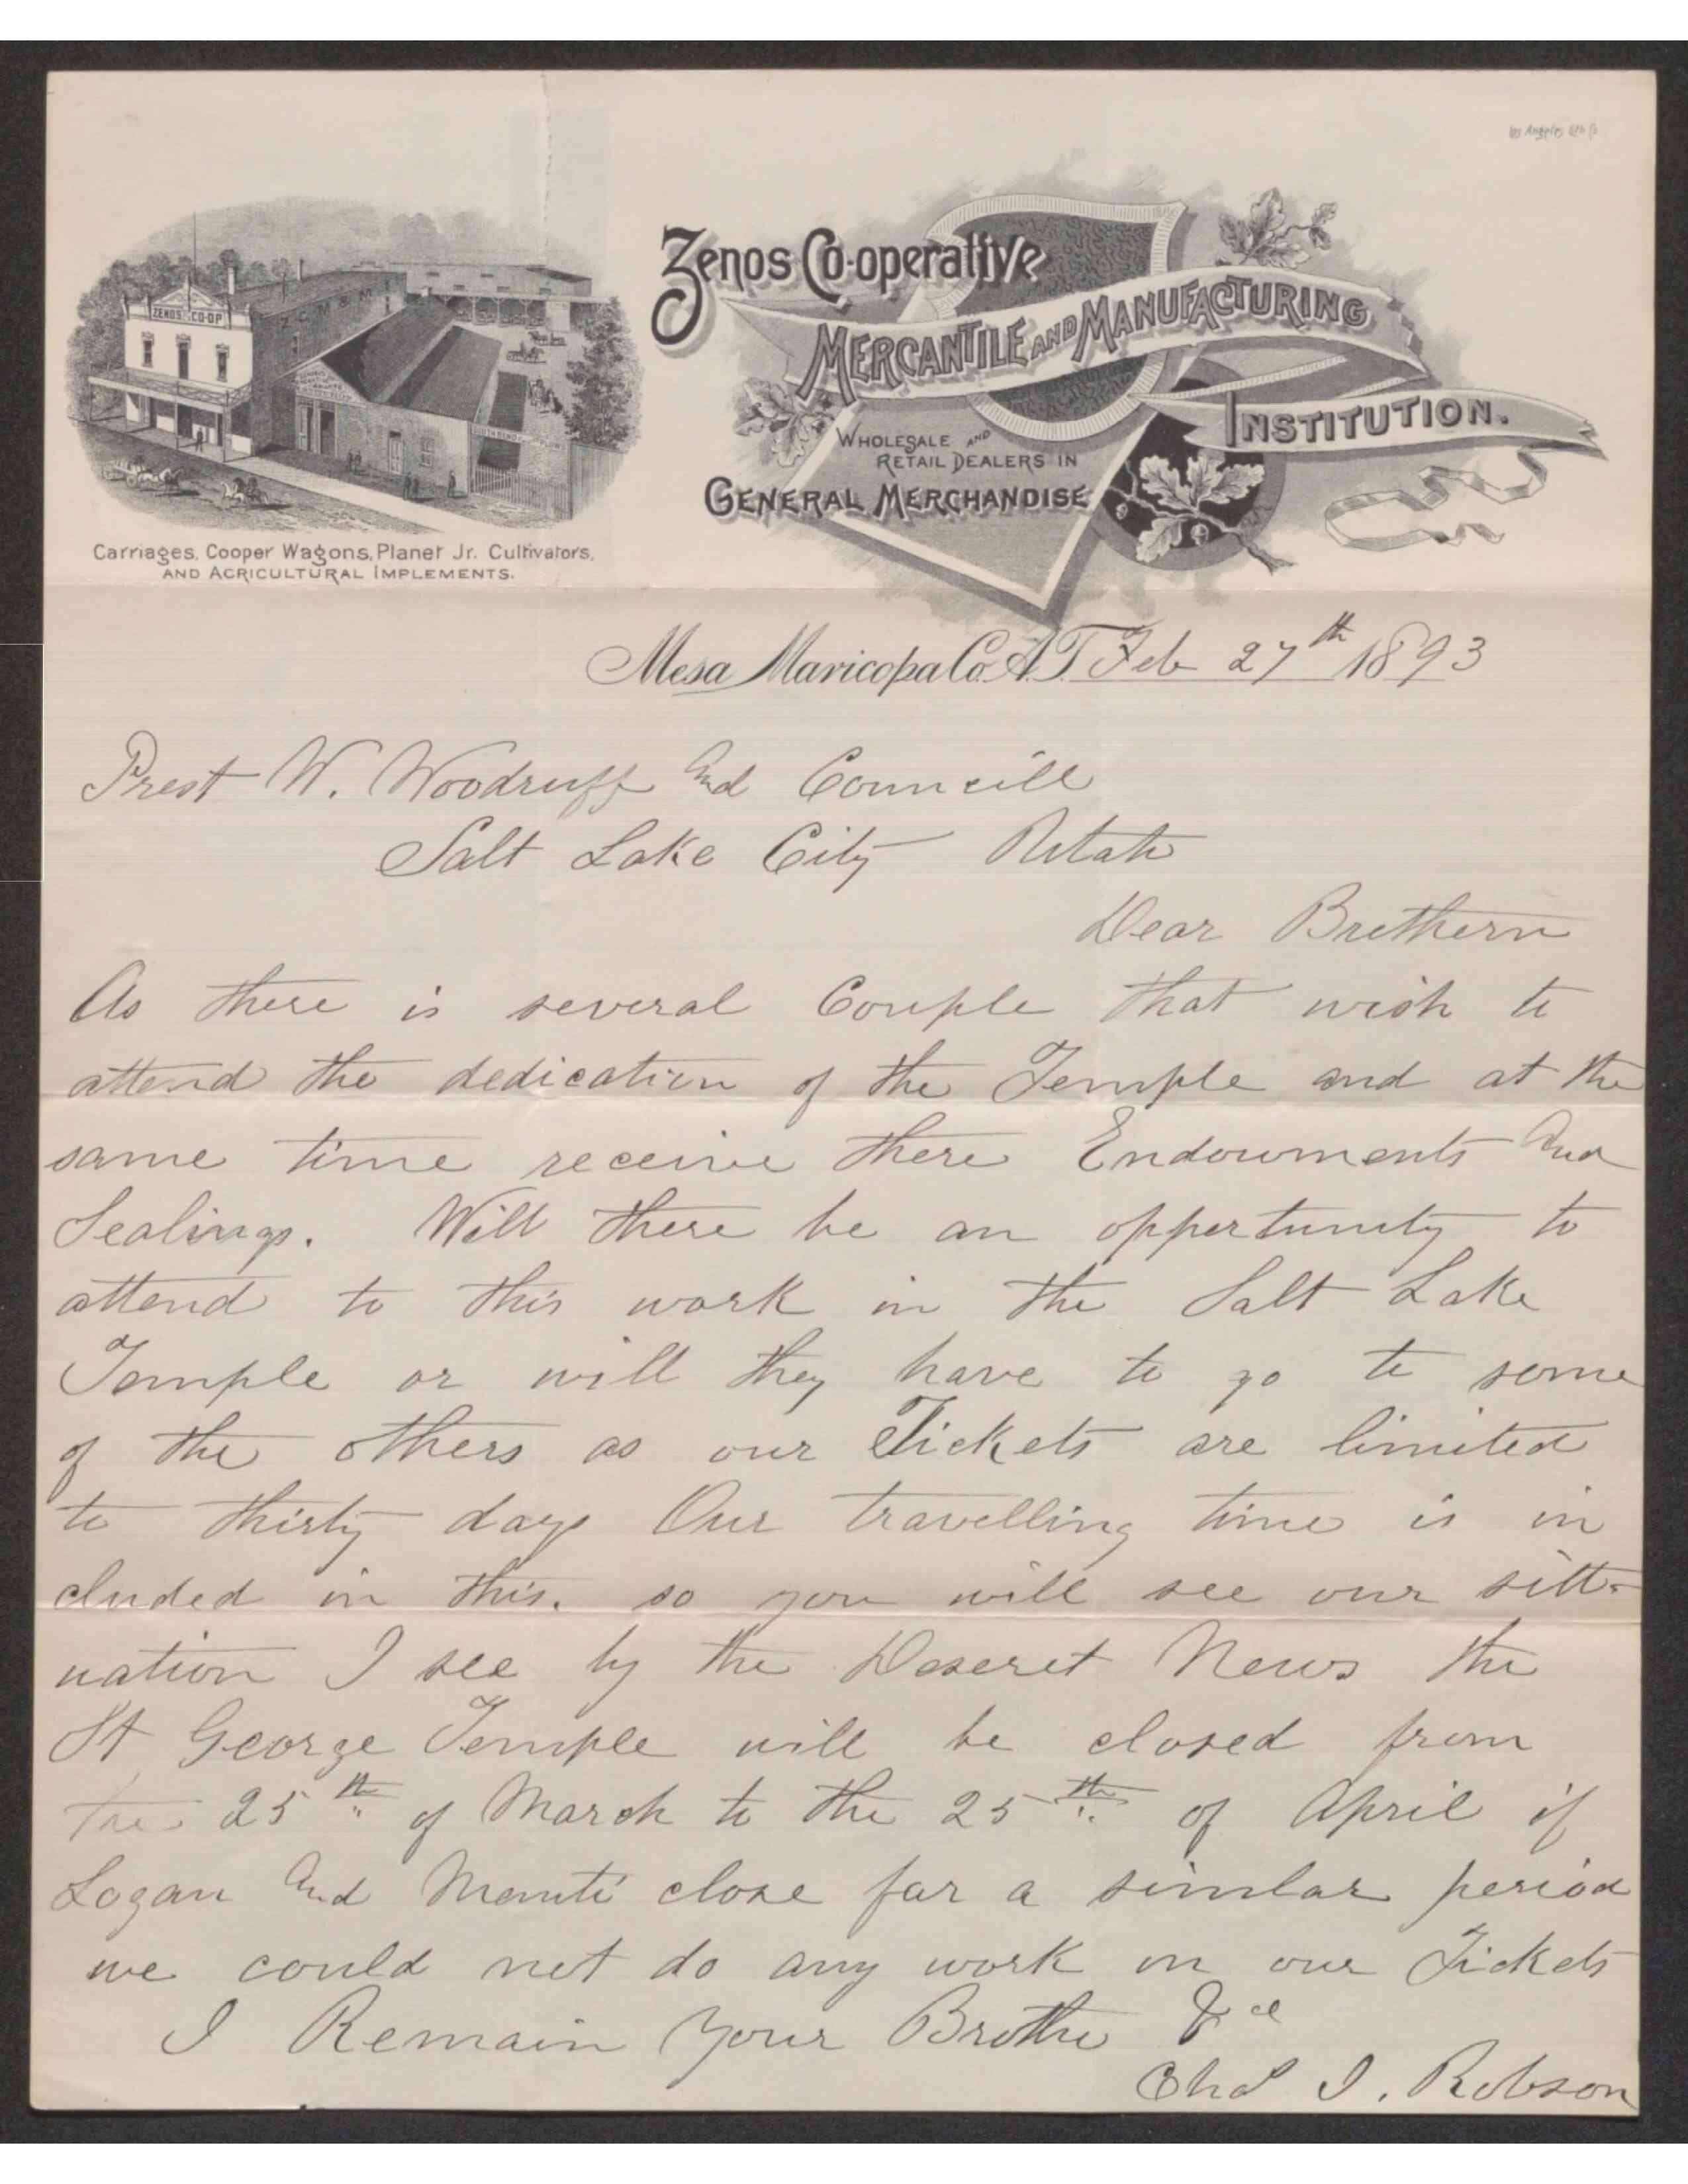 Los Angeles Lith Co
ZENOS CO-OP
Z.C.M.&M.I.
Zenos Co-operative
MERCANTILE AND MANUFACTURING
INSTITUTION.
WHOLESALE AND
RETAIL DEALERS IN
GENERAL MERCHANDISE
Carriages, Cooper Wagons, Planet Jr. Cultivators,
AND AGRICULTURAL IMPLEMENTS.
Mesa Maricopa Co. A.T. Feb 27th 1893
Prest W. Woodruff And Councill
Salt Lake City Utah
Dear Brethern
As there is several Couple that wish to
attend the dedication of the Temple and at the
same time receive there Endowments And
Sealings. Will there be an opportunity to
attend to this work in the Salt Lake
Temple or will they have to go to some
of the others as our Tickets are limited
to thirty days Our travelling time is in
cluded in this. so you will see our sitt=
uation I see by the Deseret News the
St George Temple will be closed from
the 25th of March to the 25th of April if
Logan And Manti close for a similar period
we could not do any work on our Tickets
I Remain Your Brother &c
Chas I. Robson